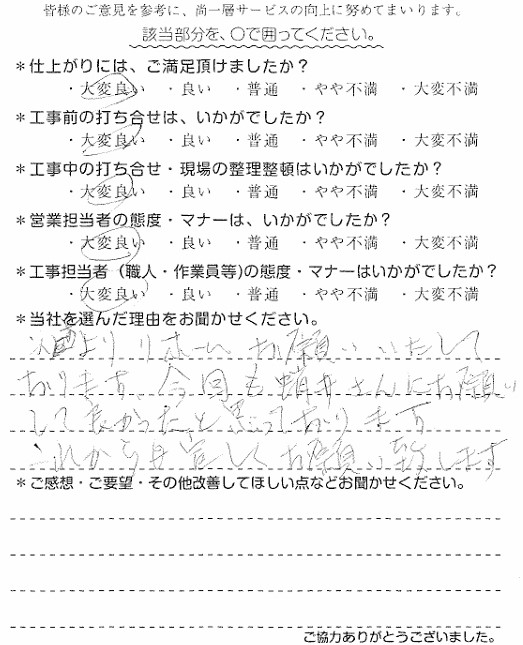 皆様のご意見を参考に、尚一層サービスの向上に努めてまいります。
該当部分を、○で囲ってください。
＊仕上がりには、ご満足頂けましたか？
・大変良い ・良い ・普通 ・やや不満 ・大変不満
＊工事前の打ち合せは、いかがでしたか？
・大変良い ・良い ・普通 ・やや不満 ・大変不満
＊工事中の打ち合せ・現場の整理整頓はいかがでしたか？
・大変良い ・良い ・普通 ・やや不満 ・大変不満
＊営業担当者の態度・マナーは、いかがでしたか？
・大変良い ・良い ・普通 ・やや不満 ・大変不満
＊工事担当者（職人・作業員等)の態度・マナーはいかがでしたか？
・大変良い ・良い ・普通 ・やや不満 ・大変不満
＊当社を選んだ理由をお聞かせください。
より リホーム お願いいたして
おります、今回も さんにお願い
して良かったと思っております
これからも宜しくお願い致します
＊ご感想・ご要望・その他改善してほしい点などお聞かせください。
ご協力ありがとうございました。